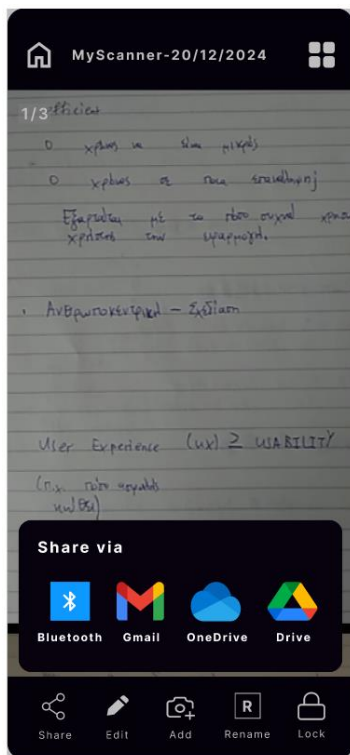 MyScanner-20/12/2024
1/3 efficient
Ο χρόνος να είναι μικρός
Ο χρόνος σε ποια επανάληψη
Εξαρτάται με το πόσο συχνά
χρήστης την εφαρμογή.
Ανθρωποκεντρική – Σχεδίαση
User Experience (UX) ≥ USABILITY
(π.χ. πόσο
Share via
Bluetooth Gmail OneDrive Drive
Share Edit Add R Rename Lock